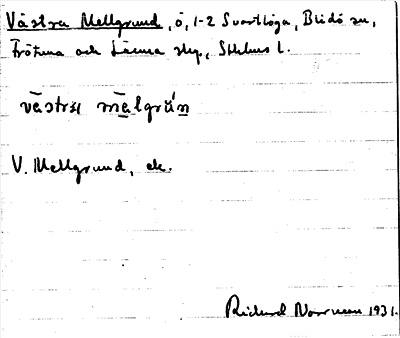 Västra Mellgrund, ö, 1-2 Svartlöga, Blidö sn,
Frötuna och Länna skg, Sthlms l.
västra mä̀lgrún
V. Mellgrund, ek.
Richard Norrman 1931.